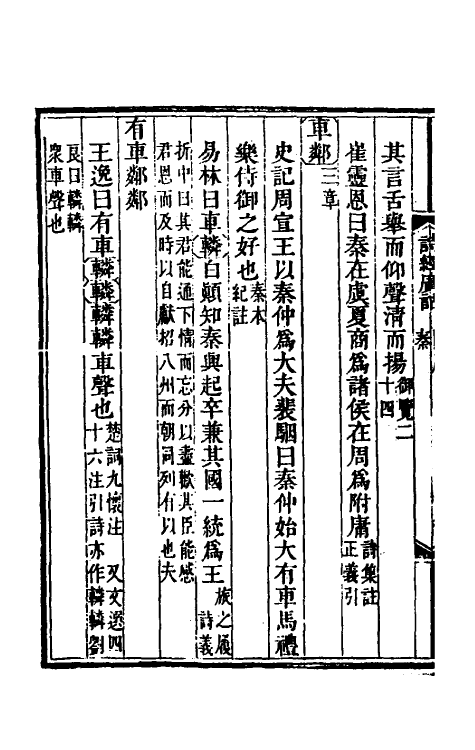 詩經廣詁 秦
其言舌舉而仰聲清而揚御覽二十四
崔靈恩曰秦在虞夏商爲諸侯在周爲附庸詩集註正義引
車鄰三章
史記周宣王以秦仲爲大夫裴駰曰秦仲始大有車馬禮
樂侍御之好也秦本紀註
易林曰車轔白顚知秦興起卒兼其國一統爲王
族之屨詩義
折中曰其君能通下情而忘分以盡歡其臣能感
君恩而及時以自獻招八州而朝同列有以也夫
有車鄰鄰
王逸曰有車轔轔轔轔車聲也楚詞九懷注 又文選四十六注引詩亦作轔轔劉
良曰轔轔
衆車聲也